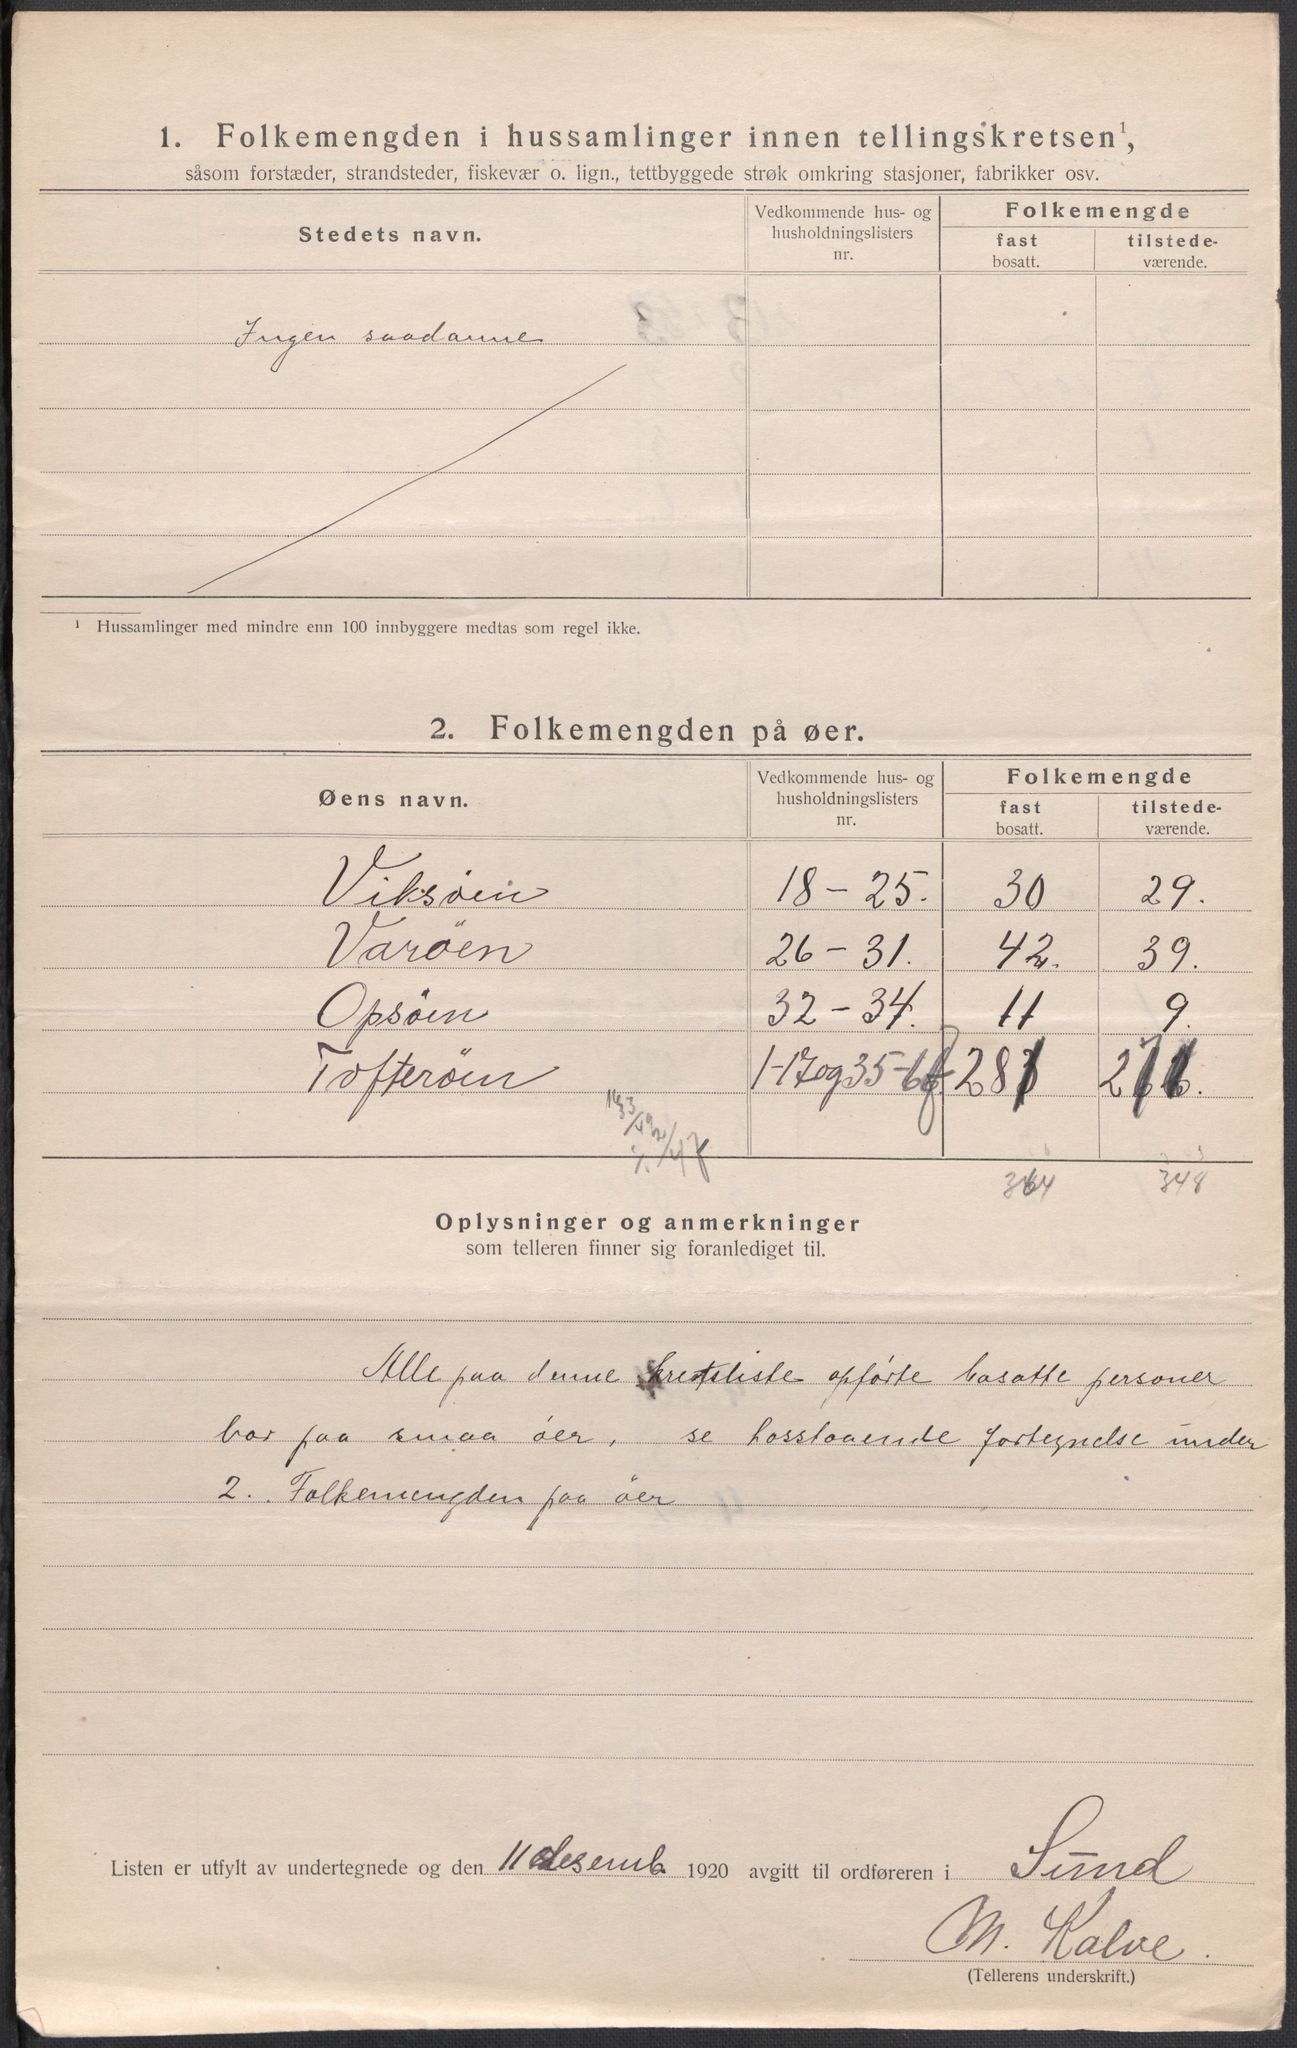 1. Folkemengden i hussamlinger innen tellingskretsen¹,
såsom forstæder, strandsteder, fiskevær o. lign., tettbyggede strøk omkring stasjoner, fabrikker osv.
Stedets navn.
Vedkommende hus- og husholdningslisters nr.
Folkemengde
fast bosatt.
tilstede-værende.
Ingen saadanne
¹ Hussamlinger med mindre enn 100 innbyggere medtas som regel ikke.
2. Folkemengden på øer.
Øens navn.
Vedkommende hus- og husholdningslisters nr.
Folkemengde
fast bosatt.
tilstede-værende.
Viksöen 18 - 25. 30 29.
Varöen 26 - 31. 42. 39.
Opsöen 32 - 34. 11 9.
Tofteröen 1-17 og 35-
348
Oplysninger og anmerkninger
som telleren finner sig foranlediget til.
Alle paa denne kretsliste opförte bosatte personer
bor paa smaa öer, se hosstaaende fortegnelse under
2. Folkemengden paa öer
Listen er utfylt av undertegnede og den 11 desemb. 1920 avgitt til ordføreren i Sund
M. Kalve.
(Tellerens underskrift.)